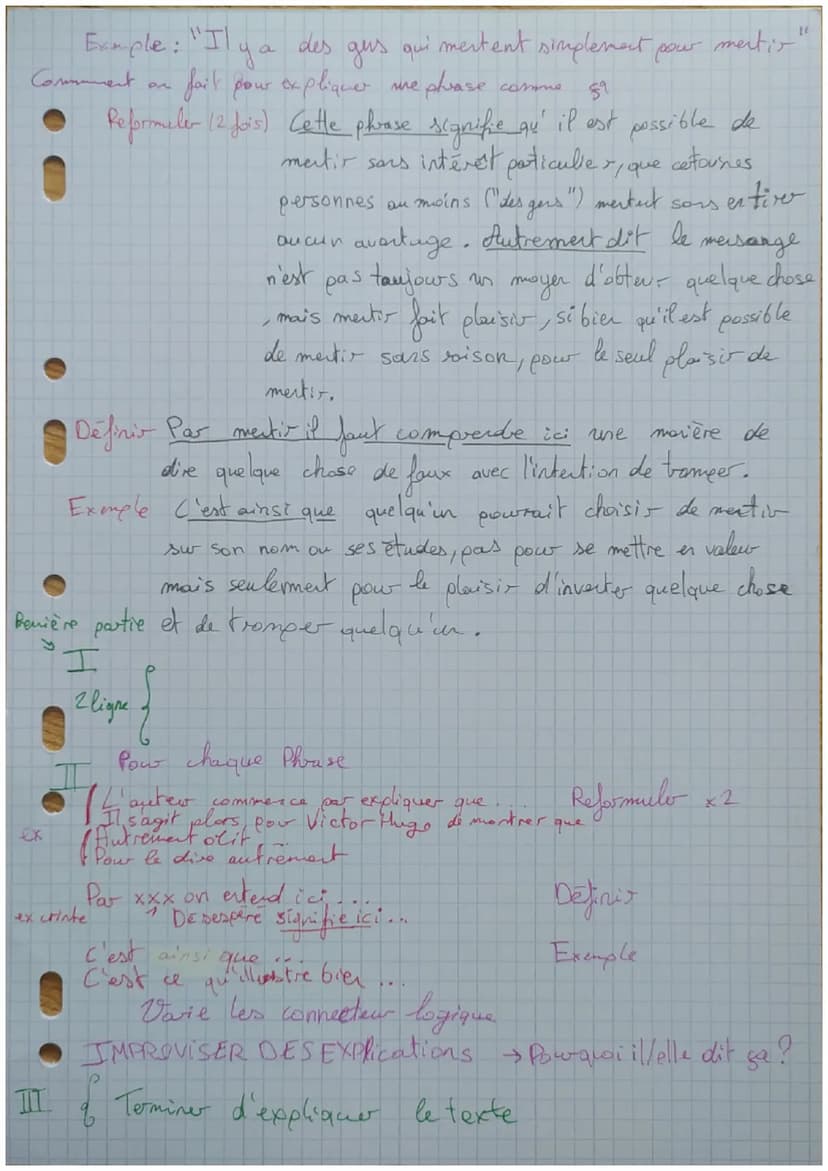 Exemple : "Il y a des gens qui mentent simplement pour mentir"
Comment on fait pour expliquer une phrase comme ça
Reformuler (2 fois) Cette phrase signifie qu'il est possible de
mentir sans intérêt particulier, que certaines
personnes au moins ("des gens") mentent sans en tirer
aucun avantage. Autrement dit le mensonge
n'est pas toujours un moyen d'obtenir quelque chose
, mais mentir fait plaisir, si bien qu'il est possible
de mentir sans raison, pour le seul plaisir de
mentir.
Définir Par mentir il faut comprendre ici une manière de
dire quelque chose de faux avec l'intention de tromper.
Exemple C'est ainsi que quelqu'un pourrait choisir de mentir
sur son nom ou ses études, pas pour se mettre en valeur
mais seulement pour le plaisir d'inventer quelque chose
et de tromper quelqu'un.
partie
I
2 ligne {
II Pour chaque Phrase
L'auteur commence par expliquer que... Reformuler x2
Il s'agit alors, pour Victor Hugo de montrer que
ex Autrement dit ...
Pour le dire autrement
Par xxx on entend ici.... Définir
ex Désespéré signifie ici...
C'est ainsi que ... Exemple
C'est ce qu'illustre bien ...
Varie les connecteur logique
IMPROVISER DES EXPlications → Pourquoi il/elle dit ça ?
III { Terminer d'expliquer le texte